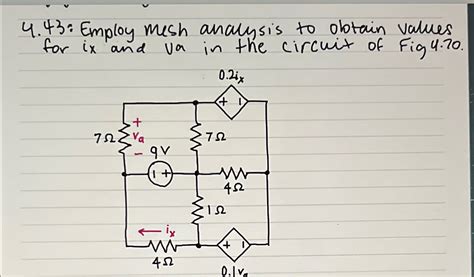 4.43: Employ mesh analysis to obtain values
for ix and va in the circuit of Fig 4.70.
0.2ix
+ -
7Ω
+
va
-
7Ω
9V
- +
4Ω
1Ω
← ix
4Ω
+ -
0.1va